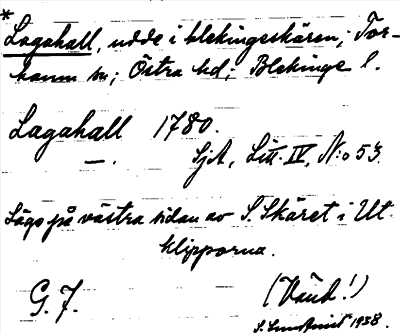 *Lagahall, udde i blekingeskären; Tor-
hamn sn; Östra hd; Blekinge l.
Lagahall 1780.
—. SjA, Litt. IV, N:o 53.
Låge på västra sidan av S. Skäret i Ut-
klipporna.
G. F. (Vänd!)
1938.